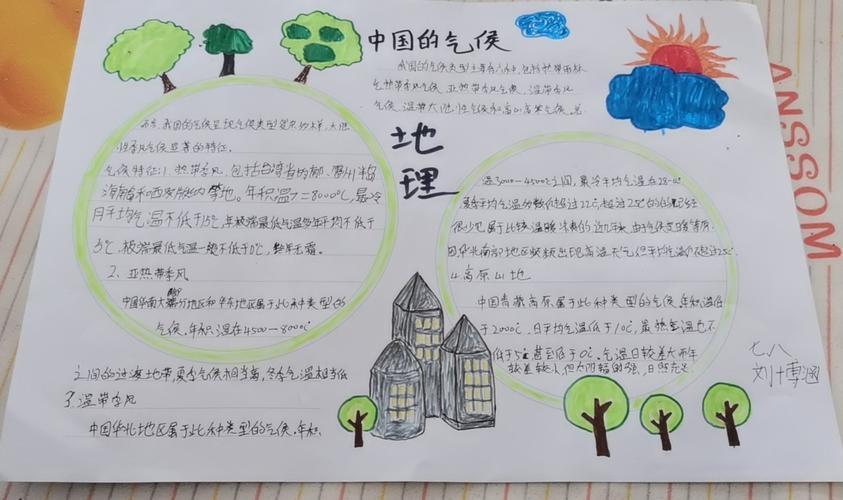 中国的气候
我国的气候类型主要有六种,包括热带雨林
气热带季风气候、亚热带季风气候、温带季风
气候、温带大陆性气候和高山高寒气候。总
地
理
而言,我国的气候呈现气候类型复杂多样,大陆
性季风气候显著的特征。
气候特征:1.热带季风,包括台湾省的南部、雷州半岛
海南岛和西双版纳等地。年积温>=8000℃,最冷
月平均气温不低于15℃,年极端最低气温多年平均不低于
5℃,极端最低气温一般不低于0℃,整年无霜。
2、亚热带季风
中国华南大部分地区和华东地区属于此种类型的
气候。年积温在4500-8000℃
之间的过渡地带,夏季气候相当高,冬季气温相当低
3.温带季风
中国华北地区属于此种类型的气候。年积
温3000-4500℃之间,最冷平均气温在28-0
很少也属于比较温暖
因华北南部地区频频出现高温天气但平均气温不超过25℃
4.高原山地
中国青藏高原属于此种类型的气候,年积温低
于2000℃,日平均气温低于10℃,最热气温也不
低于5℃甚至低于0℃。气温日较差大而年
较差较小,但太阳辐射强,日照充足
七八
刘博涵
ANSSOM